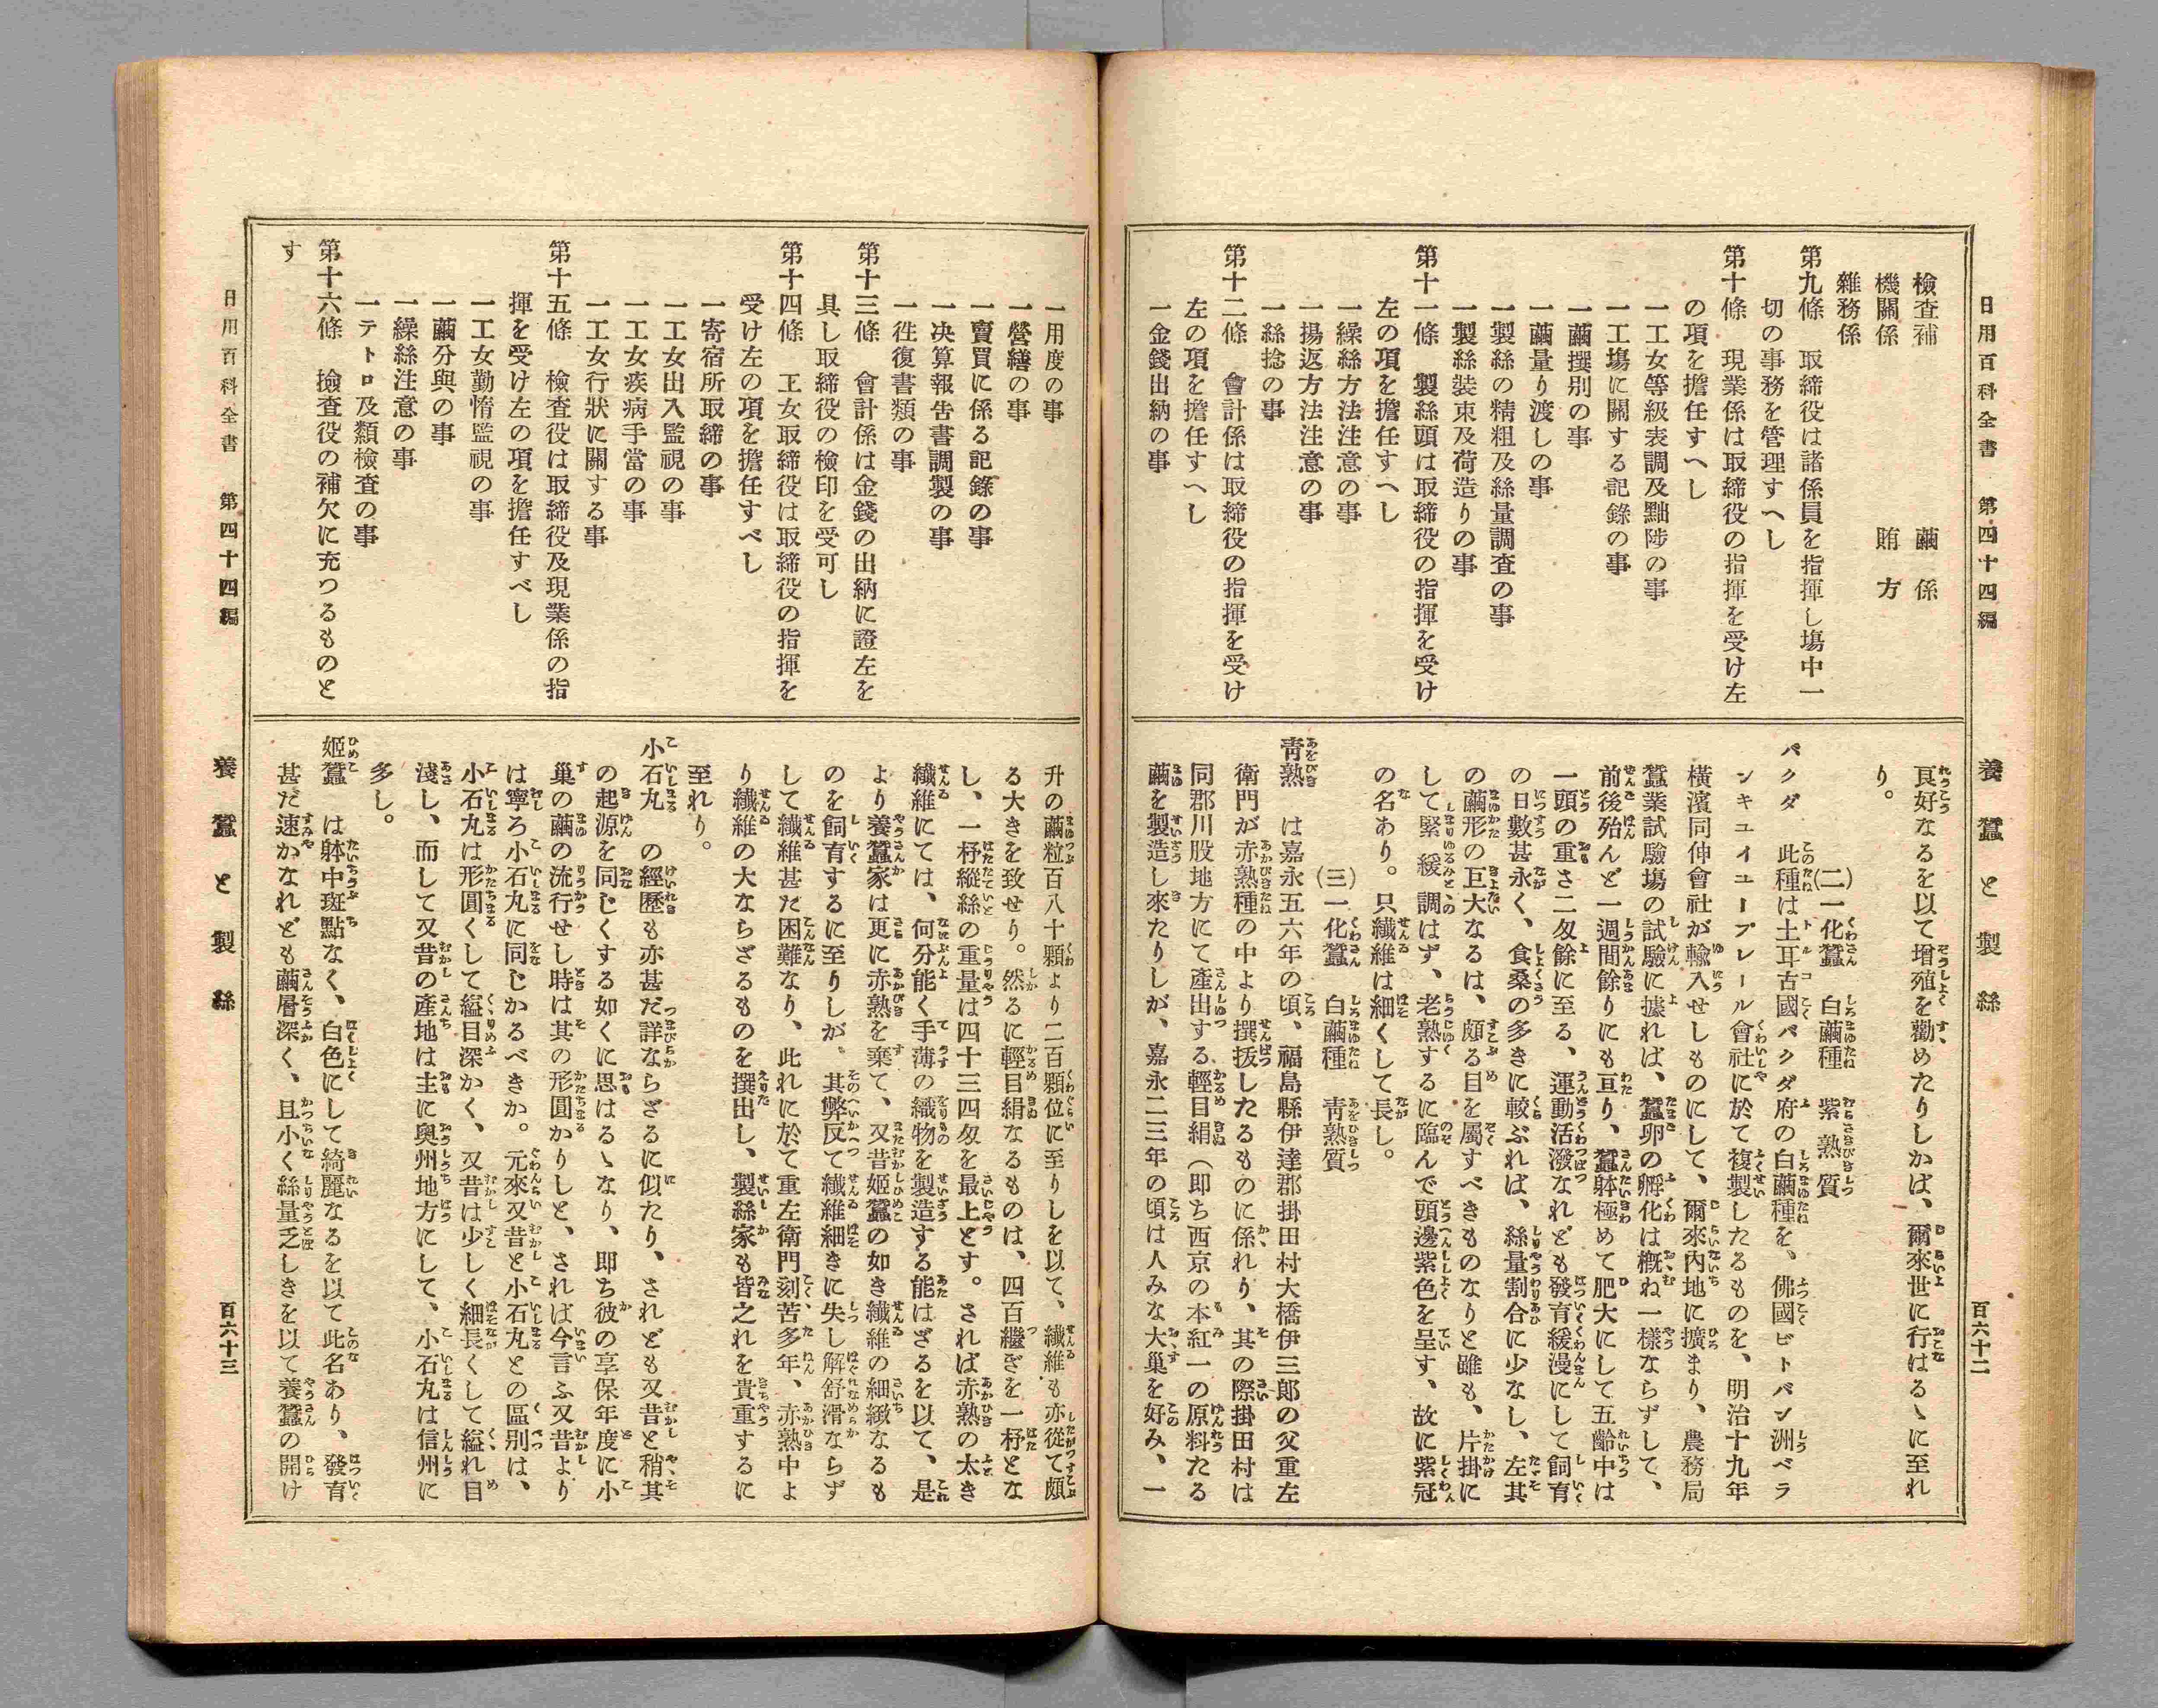 日用百科全書　第四十四編　養蠶と製絲　百六十二
檢査補　繭係
機關係　賄方
雜務係
第九條　取締役は諸係員を指揮し場中一
切の事務を管理すへし
第十條　現業係は取締役の指揮を受け左
の項を擔任すへし
一工女等級表調及黜陟の事
一工塲に關する記錄の事
一繭撰別の事
一繭量り渡しの事
一製絲の精粗及絲量調査の事
一製絲裝束及荷造りの事
第十一條　製絲頭は取締役の指揮を受け
左の項を擔任すへし
一繰絲方法注意の事
一揚返方法注意の事
一絲捻の事
第十二條　會計係は取締役の指揮を受け
左の項を擔任すへし
一金錢出納の事
良好なるを以て增殖を勸めたりしかば、爾來世に行はるゝに至れ
り。
（二）一化蠶　白繭種　紫熟質
バクダ　此種は土耳古國バクダ府の白繭種を、佛國ビトバン洲ベラ
ンキユイユープレール會社に於て複製したるものを、明治十九年
橫濱同伸會社が輸入せしものにして、爾來內地に擴まり、農務局
蠶業試驗塲の試驗に據れば、蠶卵の孵化は概ね一樣ならずして、
前後殆んど一週間餘りにも亘り、蠶躰極めて肥大にして五齡中は
一頭の重さ二匁餘に至る、運動活潑なれども發育緩漫にして飼育
の日數甚永く、食桑の多きに較ぶれば、絲量割合に少なし、左其
の繭形の巨大なるは、頗る目を屬すべきものなりと雖も、片掛に
して緊緩調はず、老熟するに臨んで頭邊紫色を呈す、故に紫冠
の名あり。只纖維は細くして長し。
（三）一化蠶　白繭種　靑熟質
靑熟　は嘉永五六年の頃、福島縣伊達郡掛田村大橋伊三郎の父重左
衛門が赤熟種の中より撰拔したるものに係れり、其の際掛田村は
同郡川股地方にて產出する輕目絹（即ち西京の本紅一の原料たる
繭を製造し來たりしが、嘉永二三年の頃は人みな大巢を好み、一
一用度の事
一營繕の事
一賣買に係る記錄の事
一决算報告書調製の事
一徃復書類の事
第十三條　會計係は金錢の出納に證左を
具し取締役の檢印を受可し
第十四條　工女取締役は取締役の指揮を
受け左の項を擔任すべし
一寄宿所取締の事
一工女出入監視の事
一工女疾病手當の事
一工女行狀に關する事
第十五條　檢査役は取締役及現業係の指
揮を受け左の項を擔任すべし
一工女勤惰監視の事
一繭分與の事
一繰絲注意の事
一テトロ及類檢査の事
第十六條　撿査役の補欠に充つるものと
す
升の繭粒百八十顆より二百顆位に至りしを以て、纖維も亦從て頗
る大きを致せり。然るに輕目絹なるものは、四百繼ぎを一杼とな
し、一杼縱絲の重量は四十三四匁を最上とす。されば赤熟の太き
纖維にては、何分能く手薄の織物を製造する能はざるを以て、是
より養蠶家は更に赤熟を棄て、又昔姬蠶の如き纖維の細緻なるも
のを飼育するに至りしが。其弊反て纖維細きに失し解舒滑ならず
して纖維甚だ困難なり、此れに於て重左衛門刻苦多年、赤熟中よ
り纖維の大ならざるものを撰出し、製絲家も皆之れを貴重するに
至れり。
小石丸　の經歷も亦甚だ詳ならざるに似たり、されども又昔と稍其
の起源を同じくする如くに思はるゝなり、即ち彼の享保年度に小
巢の繭の流行せし時は其の形圓かりしと、されば今言ふ又昔より
は寧ろ小石丸に同じかるべきか。元來又昔と小石丸との區別は、
小石丸は形圓くして縊目深かく、又昔は少しく細長くして縊れ目
淺し、而して又昔の產地は主に奧州地方にして、小石丸は信州に
多し。
姬蠶　は躰中斑點なく、白色にして綺麗なるを以て此名あり、發育
甚だ速かなれども繭層深く、且小く絲量乏しきを以て養蠶の開け
日用百科全書　第四十四編　養蠶と製絲　百六十三